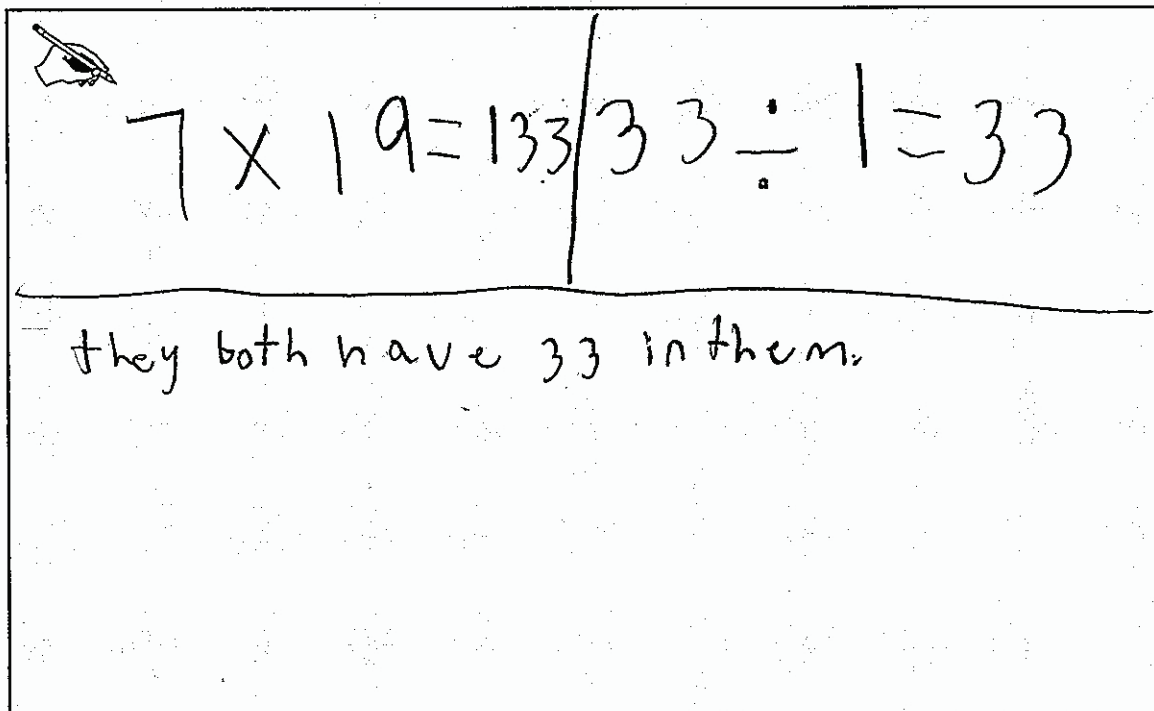 7 x 19 = 133 33 ÷ 1 = 33
they both have 33 in them.